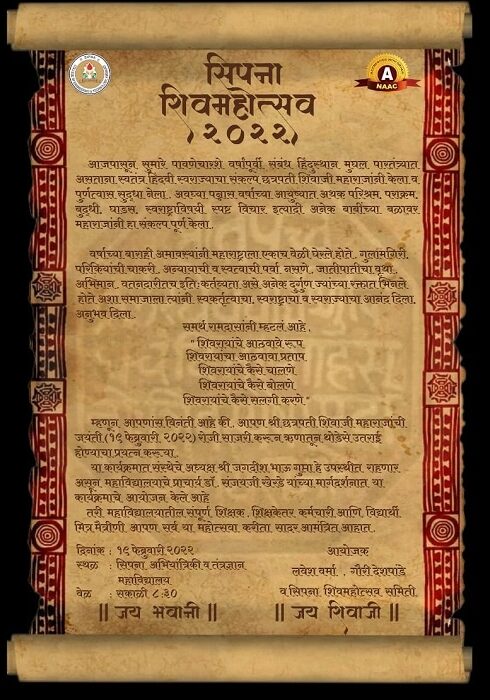 सिपना
शिवमहोत्सव
२०२२
A
NAAC
आजपासून सुमारे पावणेचारशे वर्षापूर्वी संबंध हिंदुस्थान मुघल पारतंत्र्यात
असताना स्वतंत्र हिंदवी स्वराज्याचा संकल्प छत्रपती शिवाजी महाराजांनी केला व
पुर्णत्वास सुद्धा नेला.. अवघ्या पन्नास वर्षाच्या आयुष्यात अथक परिश्रम, पराक्रम,
बुद्धी, धाडस, स्वराष्ट्राविषयी स्पष्ट विचार इत्यादी अनेक बाबींच्या बळावर
महाराजांनी हा संकल्प पूर्ण केला..
वर्षाच्या बाराही अमावस्यांनी महाराष्ट्राला एकाच वेळी घेरले होते.. गुलामगिरी,
परिकियांची चाकरी, अन्यायाची व स्वत्वाची पर्वा नसणे, जातीपातीचा वृथा
अभिमान, वतनदारीतच इति:कर्तव्यता असे अनेक दुर्गुण ज्यांच्या रक्तात भिनले
होते अशा समाजाला त्यांनी स्वकर्तृत्वाचा, स्वराष्ट्राचा व स्वराज्याचा आनंद दिला,
अनुभव दिला..
समर्थ रामदासांनी म्हटलं आहे ,
" शिवरायांचे आठवावे रूप
शिवरायांचा आठवावा प्रताप
शिवरायांचे कैसे चालणे
शिवरायांचे कैसे बोलणे
शिवरायांचे कैसे सलगी करणे "
म्हणून आपणांस विनंती आहे की.. आपण श्री छत्रपती शिवाजी महाराजांची
जयंती (१९ फेब्रुवारी, २०२२) रोजी साजरी करून ऋणातून थोडेसे उतराई
होण्याचा प्रयत्न करू या..
या कार्यक्रमात संस्थेचे अध्यक्ष श्री जगदीश भाऊ गुप्ता हे उपस्थीत राहणार
असून महाविद्यालयाचे प्राचार्य डॉ. संजयजी खेरडे यांच्या मार्गदर्शनात या
कार्यक्रमाचे आयोजन केले आहे
तरी महाविद्यालयातील संपूर्ण शिक्षक, शिक्षकेतर कर्मचारी आणि विद्यार्थी
मित्र मैत्रीणी आपण सर्व या महोत्सवा करीता सादर आमंत्रित आहात..
दिनांक : १९ फेब्रुवारी २०२२
स्थळ : सिपना अभियांत्रिकी व तंत्रज्ञान
महाविद्यालय
वेळ : सकाळी ८:३०
आयोजक
लवेश वर्मा , गौरी देशपांडे
व सिपना शिवमहोत्सव समिती
|| जय भवानी ||
|| जय शिवाजी ||